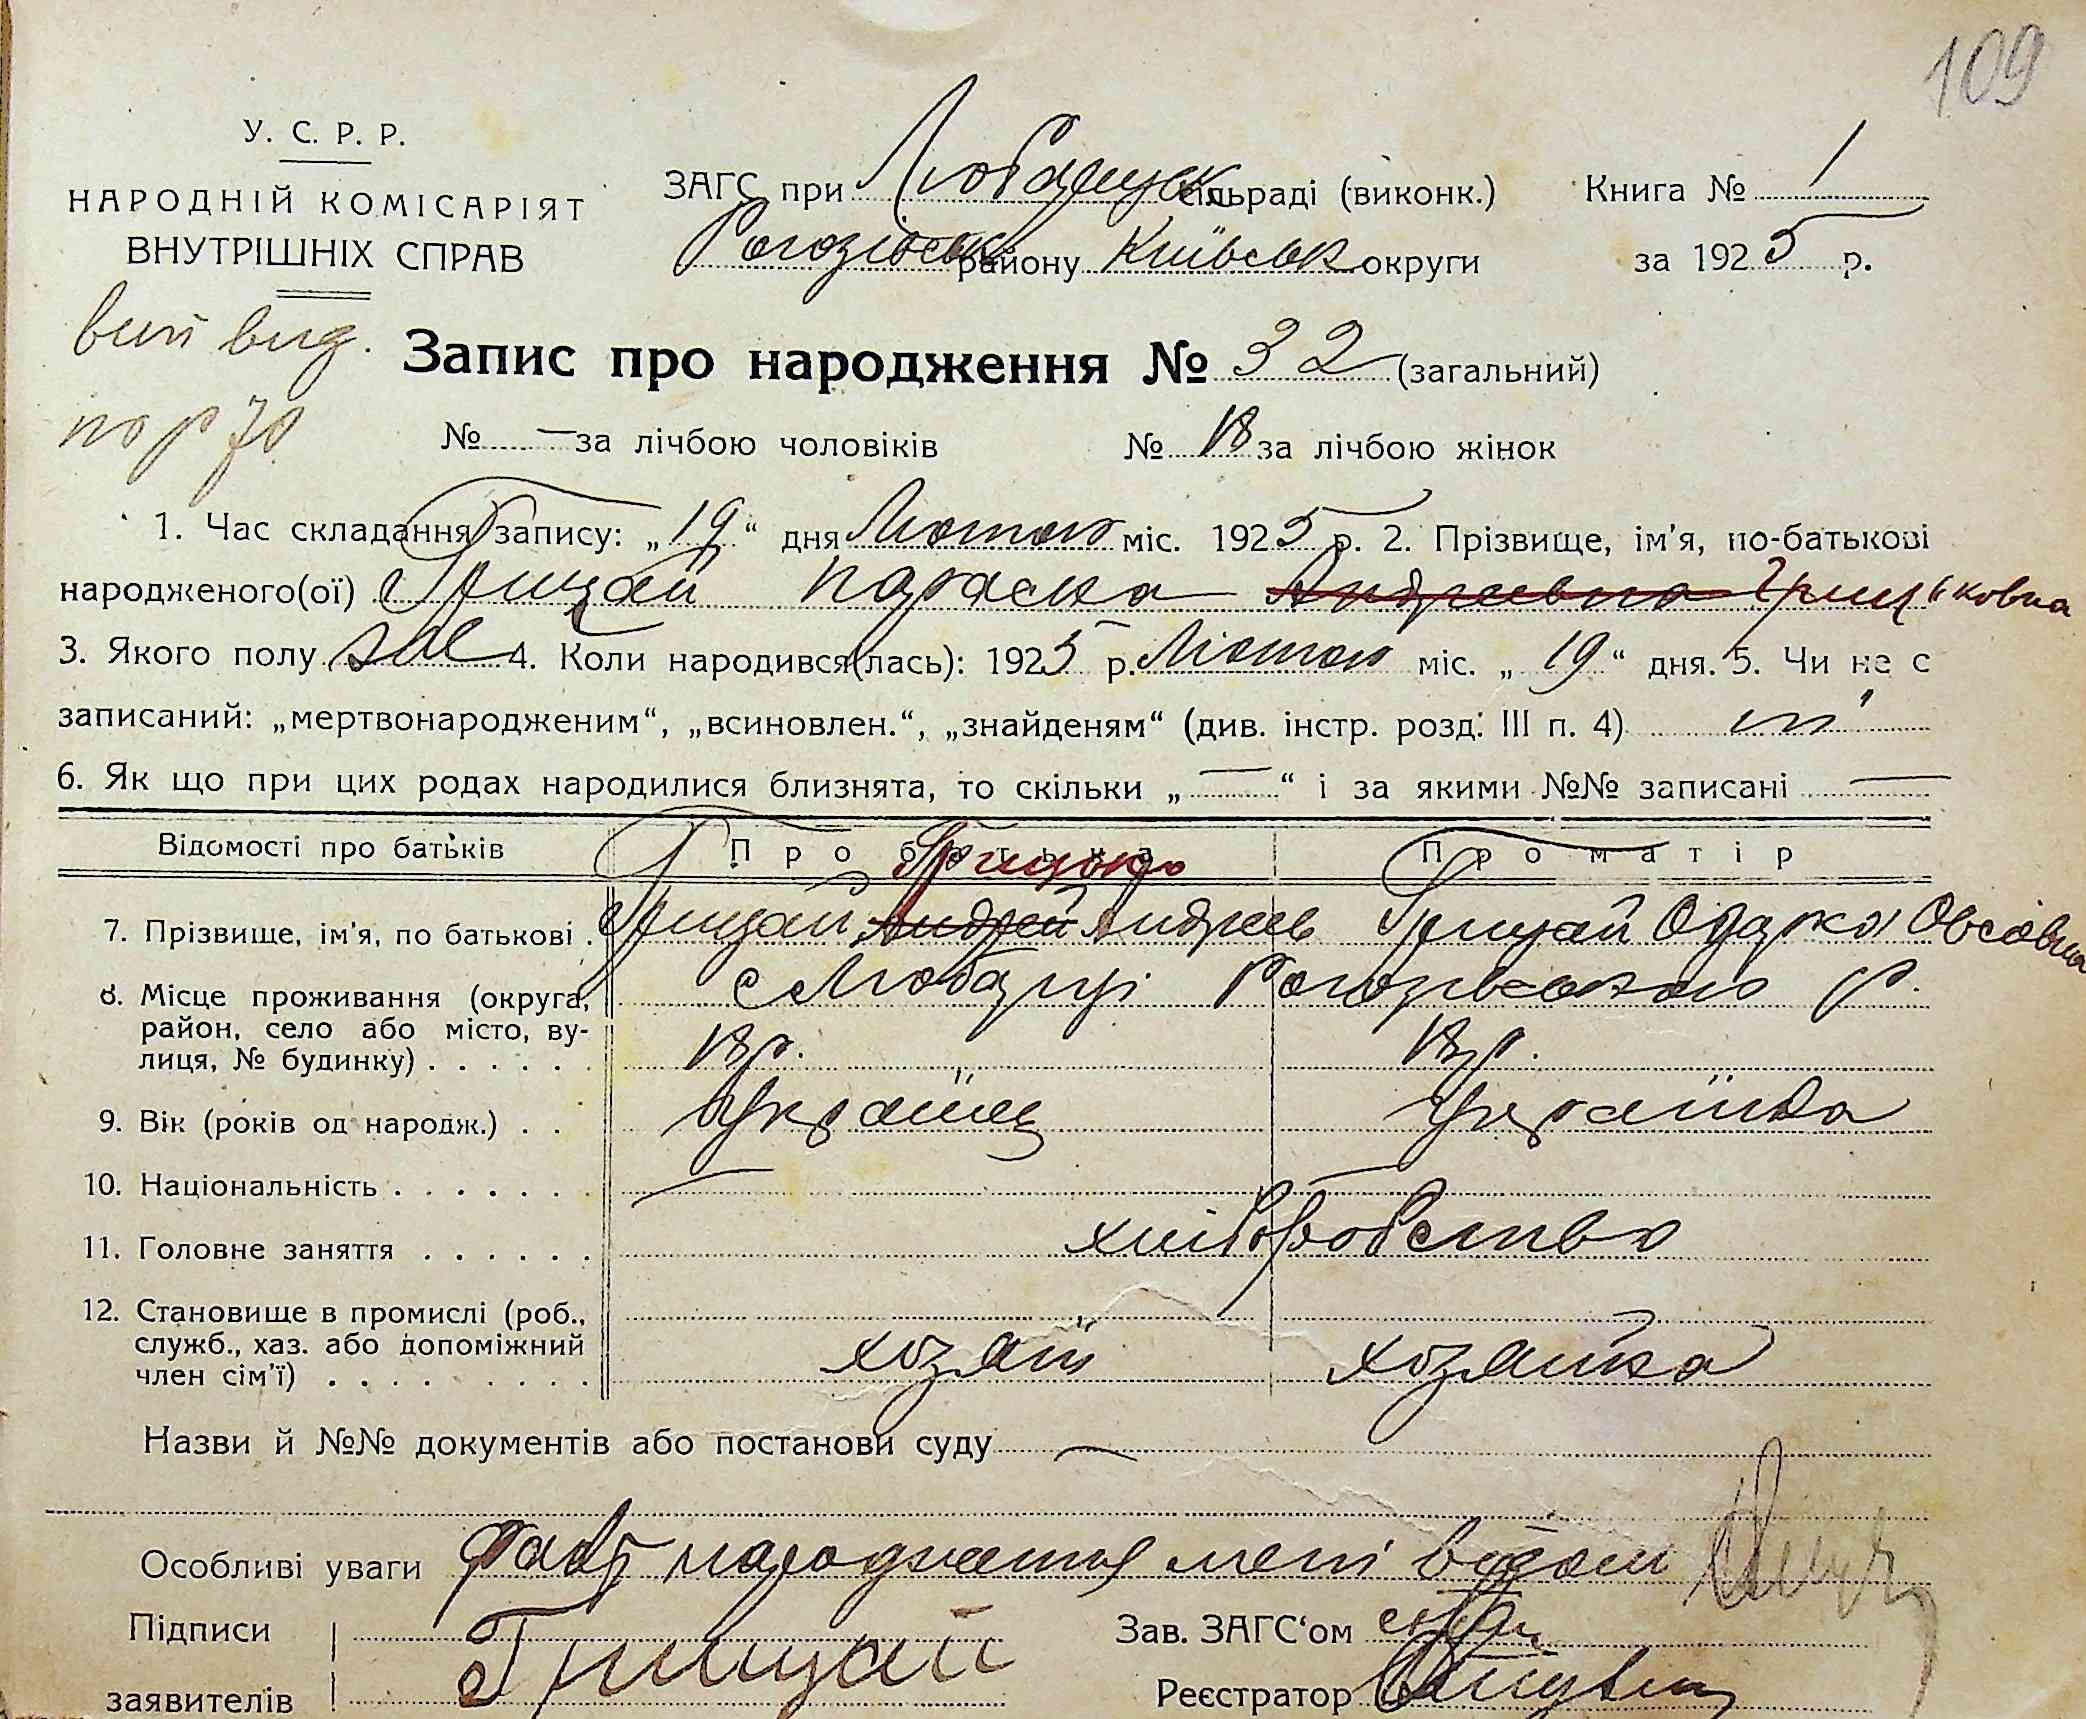 109
У. С. Р. Р.
НАРОДНІЙ КОМІСАРІЯТ
ВНУТРІШНІХ СПРАВ
ЗАГС при Любарцук сільраді (виконк.) Книга № 1
Рогозівськ району Київськ округи за 1925 р.
вид.
Запис про народження № 32 (загальний)
№ — за лічбою чоловіків № 18 за лічбою жінок
1. Час складання запису: „19“ дня Лютого міс. 1925 р. 2. Прізвище, ім'я, по-батькові
народженого(ої) Грицай Параска Андреевна Грицьковна
3. Якого полу жіс 4. Коли народився(лась): 1925 р. Лютого міс. „19“ дня. 5. Чи не є
записаний: „мертвонародженим“, „всиновлен.“, „знайденям“ (див. інстр. розд. III п. 4) ні
6. Як що при цих родах народилися близнята, то скільки „—“ і за якими №№ записані —
Відомості про батьків Про батька Про матір
Грицько
7. Прізвище, ім'я, по батькові . Грицай Андрей Андреев Грицай Одарка Овсіевна
8. Місце проживання (округа, район, село або місто, вулиця, № будинку) . . . . . . с Любарці Рогозівського р.
18 р. 18 р.
9. Вік (років од народж.) . . Українец Українка
10. Національність . . . . . . . —
11. Головне заняття . . . . . . хліборобство
12. Становище в промислі (роб., служб., хаз. або допоміжний член сім'ї) . . . . . . . . . хозяїн хозяйка
Назви й №№ документів або постанови суду —
Особливі уваги факт народження мені відом
Підписи Зав. ЗАГС‘ом
Грицай
заявителів Реєстратор